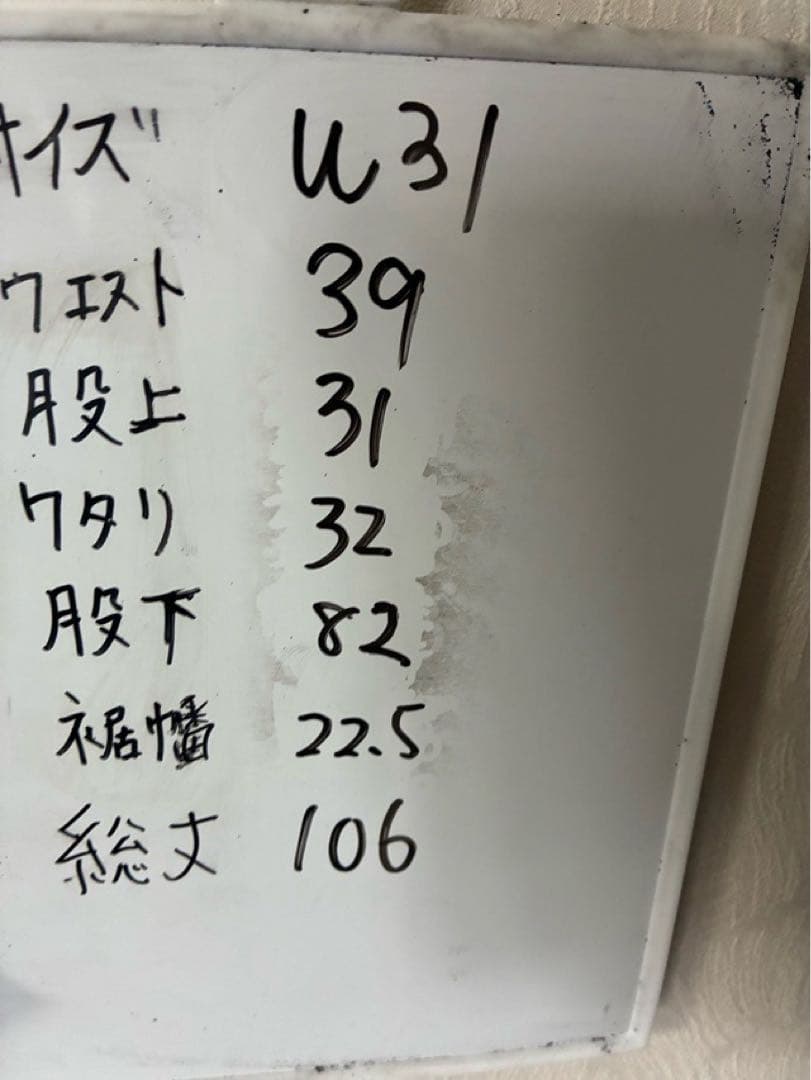 サイズ W31
ウエスト 39
股上 31
ワタリ 32
股下 82
裾幅 22.5
総丈 106